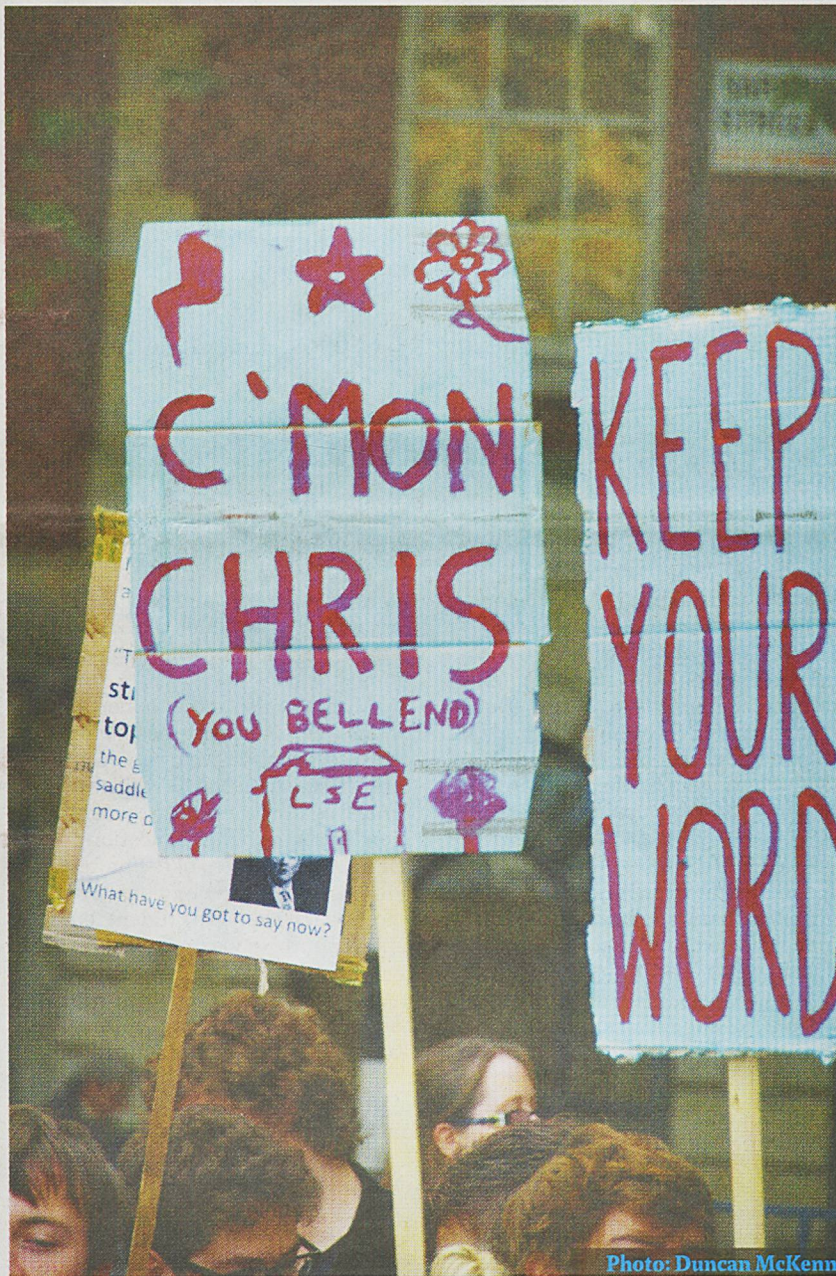 C'MON
CHRIS
(YOU BELLEND)
LSE
KEEP
YOUR
WORD
"T
sti
top
the g
saddle
more
What have you got to say now?
Photo: Duncan McKenn